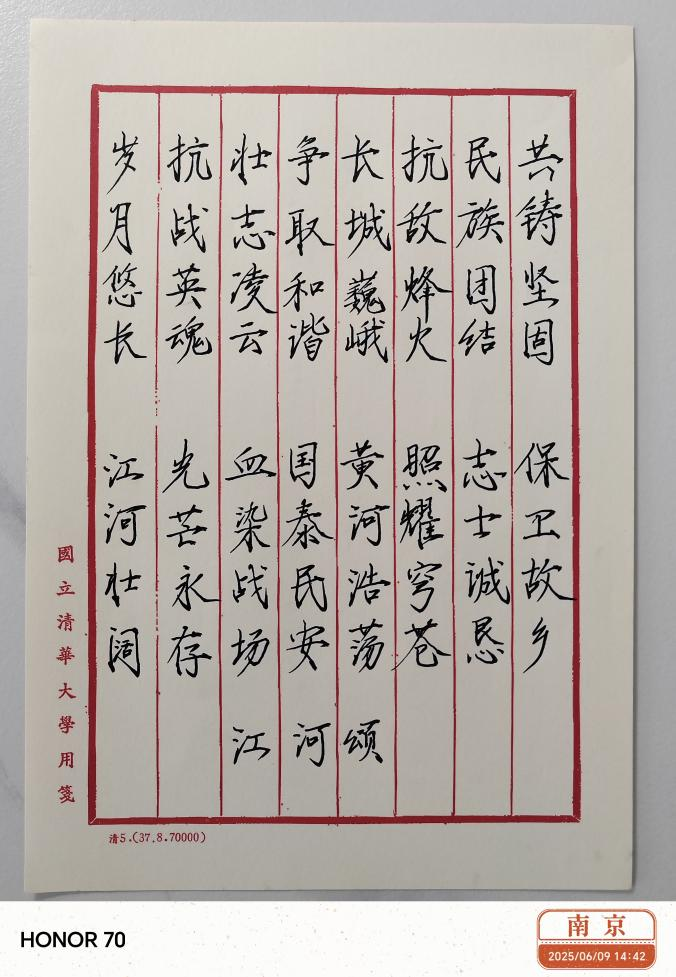 岁月悠长 江河壮阔
抗战英魂 光芒永存
壮志凌云 血染战场
争取和谐 国泰民安
长城巍峨 黄河浩荡
抗敌烽火 照耀穹苍
民族团结 志士诚恳
共铸坚固 保卫故乡
江河颂
國立清華大學用箋
清5.(37.8.70000)
HONOR 70
南京
2025/06/09 14:42